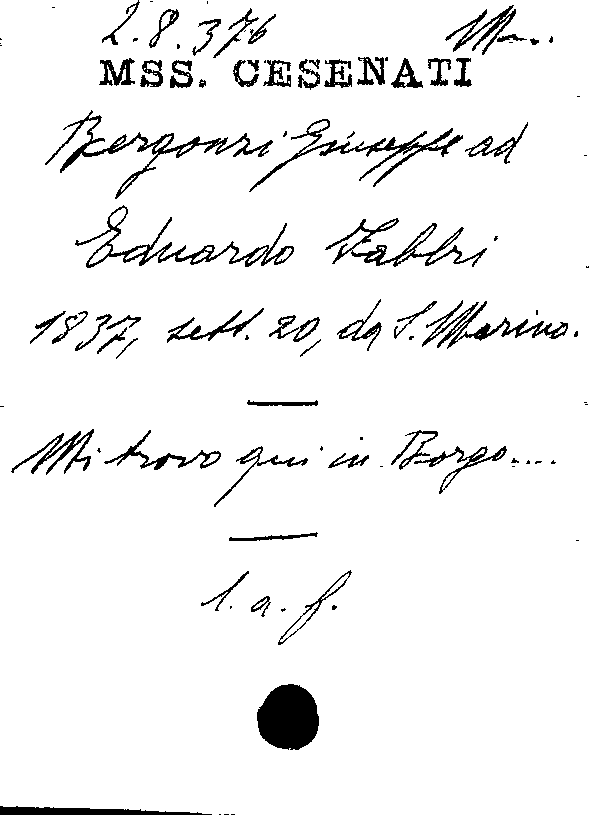 2.8.376
MSS. CESENATI
Bergonzi Giuseppe ad
Eduardo Fabbri
1837, sett. 20, da S. Marino.
Mi trovo qui in Borgo....
l. a. f.